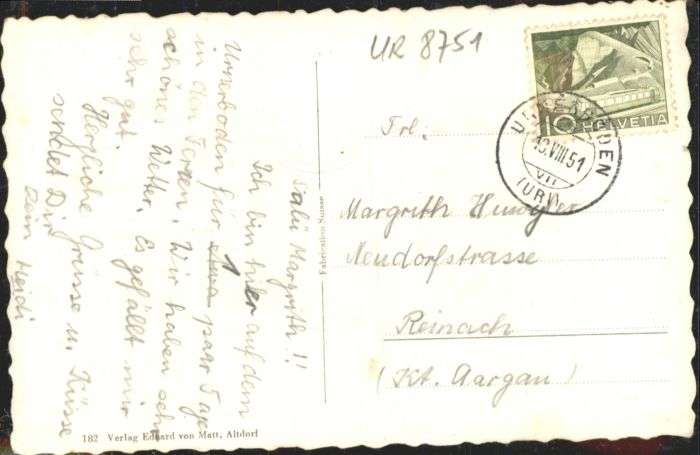 Salü Margrith!!
Ich bin hier auf dem
Urnerboden für 1 paar Tage
in den Ferien. Wir haben sehr
schönes Wetter. Es gefällt mir
sehr gut.
Herzliche Grüsse u. Küsse
sendet Dir
Dein Heidi
182 Verlag Eduard von Matt, Altdorf
Fabrication Suisse
UR 8751
10 HELVETIA
VIII 51
VII
(URI)
Frl.
Margrith
Neudorfstrasse
Reinach
(Kt. Aargau)